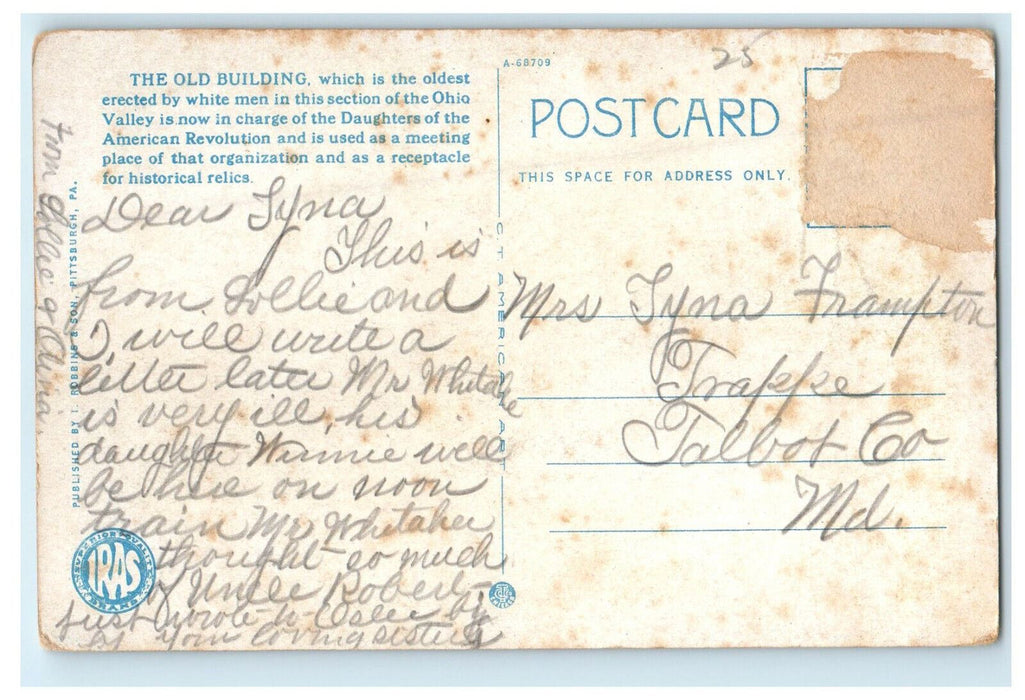 THE OLD BUILDING, which is the oldest
erected by white men in this section of the Ohio
Valley is now in charge of the Daughters of the
American Revolution and is used as a meeting
place of that organization and as a receptacle
for historical relics.
Dear Tyna
This is
from Lollie and
I will write a
letter later Mr Whitake
is very ill, his
daughter Winnie will
be here on noon
train Mr Whitaker
thought so much
of Uncle Robert
Just wrote to
your loving sisters
from Lollie &
PUBLISHED BY I. ROBBINS & SON, PITTSBURGH, PA.
SUPERIOR QUALITY
IRAS
BRAND
C.T. AMERICAN ART
A-68709
25
POST CARD
THIS SPACE FOR ADDRESS ONLY.
Mrs Tyna Frampton
Trappe
Talbot Co
Md.